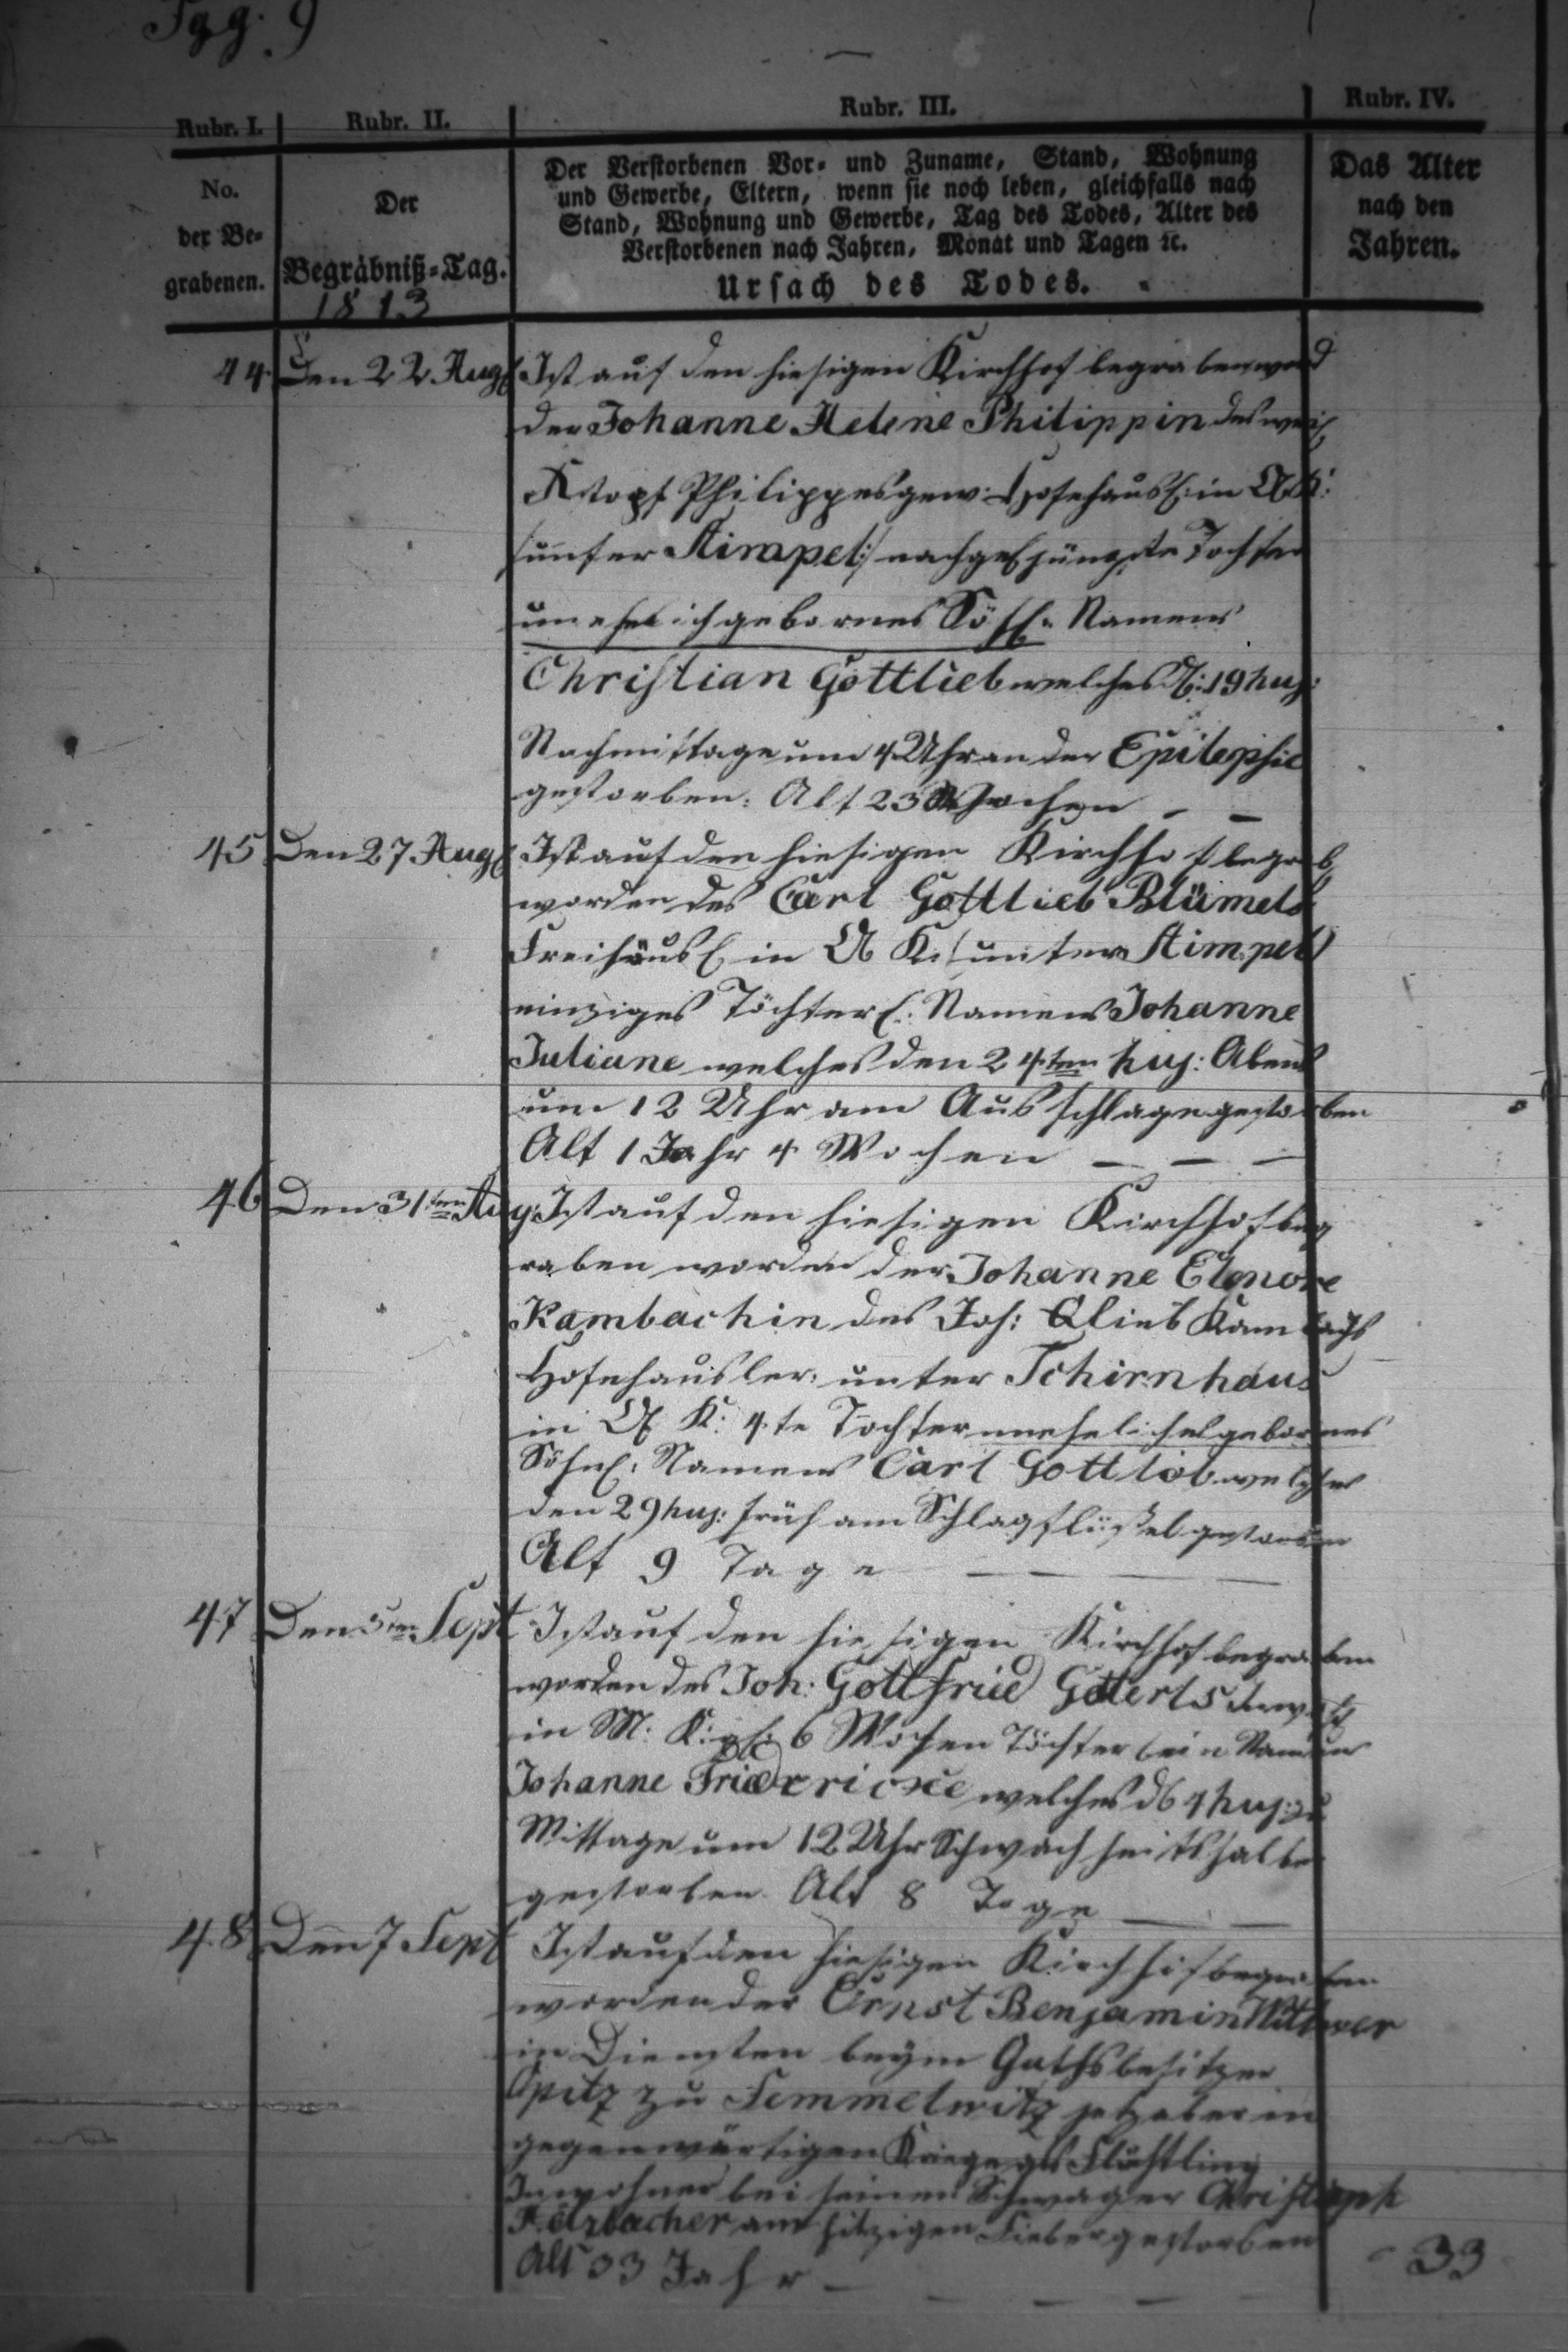 Pgg. 9
Rubr. I. Rubr. II. Rubr. III. Rubr. IV.
No. der Be- grabenen.
Der Begräbniß-Tag.
1813
Der Verstorbenen Vor- und Zuname, Stand, Wohnung
und Gewerbe, Eltern, wenn sie noch leben, gleichfalls nach
Stand, Wohnung und Gewerbe, Tag des Todes, Alter des
Verstorbenen nach Jahren, Monat und Tagen ꝛc.
Ursach des Todes.
Das Alter
nach den
Jahren.
44 Den 22 Aug Ist auf den hiesigen Kirchhof begraben word
der Johanne Helene Philippin des
Philippes gew: Hofehäusl: in
unter nachgel jüngste Tochter
unehelich gebornes Söhl: Namens
Christian Gottlieb welches d: 19 huj:
Nachmittage um 4 Uhr an der Epilepsie
gestorben: Alt 23 Wochen
45 Den 27 Aug Ist auf den hiesigen Kirchhof begrab
worden des Carl Gottlieb Blümels
Freihäusl in K: unter
einziges Töchterl: Namens Johanne
Juliane welches den 24ten huj: Abend
um 12 Uhr am Ausschlage gestorben
Alt 1 Jahr 4 Wochen
46 Den 31ten Aug: Ist auf den hiesigen Kirchhof beg
raben worden der Johanne Elenore
Kambachin des Joh: Glieb Kambachs
Hofehäusler: unter Tschirnhaus
in K: 4te Tochter unehelich gebornes
Söhnl: Namens Carl Gottlob welches
den 29 huj: früh am Schlagflüßel gestorben
Alt 9 Tage
47 Den 5ten Sept Ist auf den hiesigen Kirchhof begraben
worden des Joh: Gottfried
in M: K: 6 Wochen Töchterlein Namens
Johanne Friedricke welches d 4 huj: zu
Mittage um 12 Uhr Schwachheitshalber
gestorben Alt 8 Tage
48 Den 7 Sept Ist auf den hiesigen Kirchhof begraben
worden der Ernst Benjamin Wittwer
in Diensten beym Guthsbesitzer
Opitz zu Semmelwitz jetzt aber im
gegenwärtigen Kriege als Flüchtling
Inwohner bei seinem Schwager Christoph
am hitzigen Fieber gestorben
Alt 33 Jahr 33